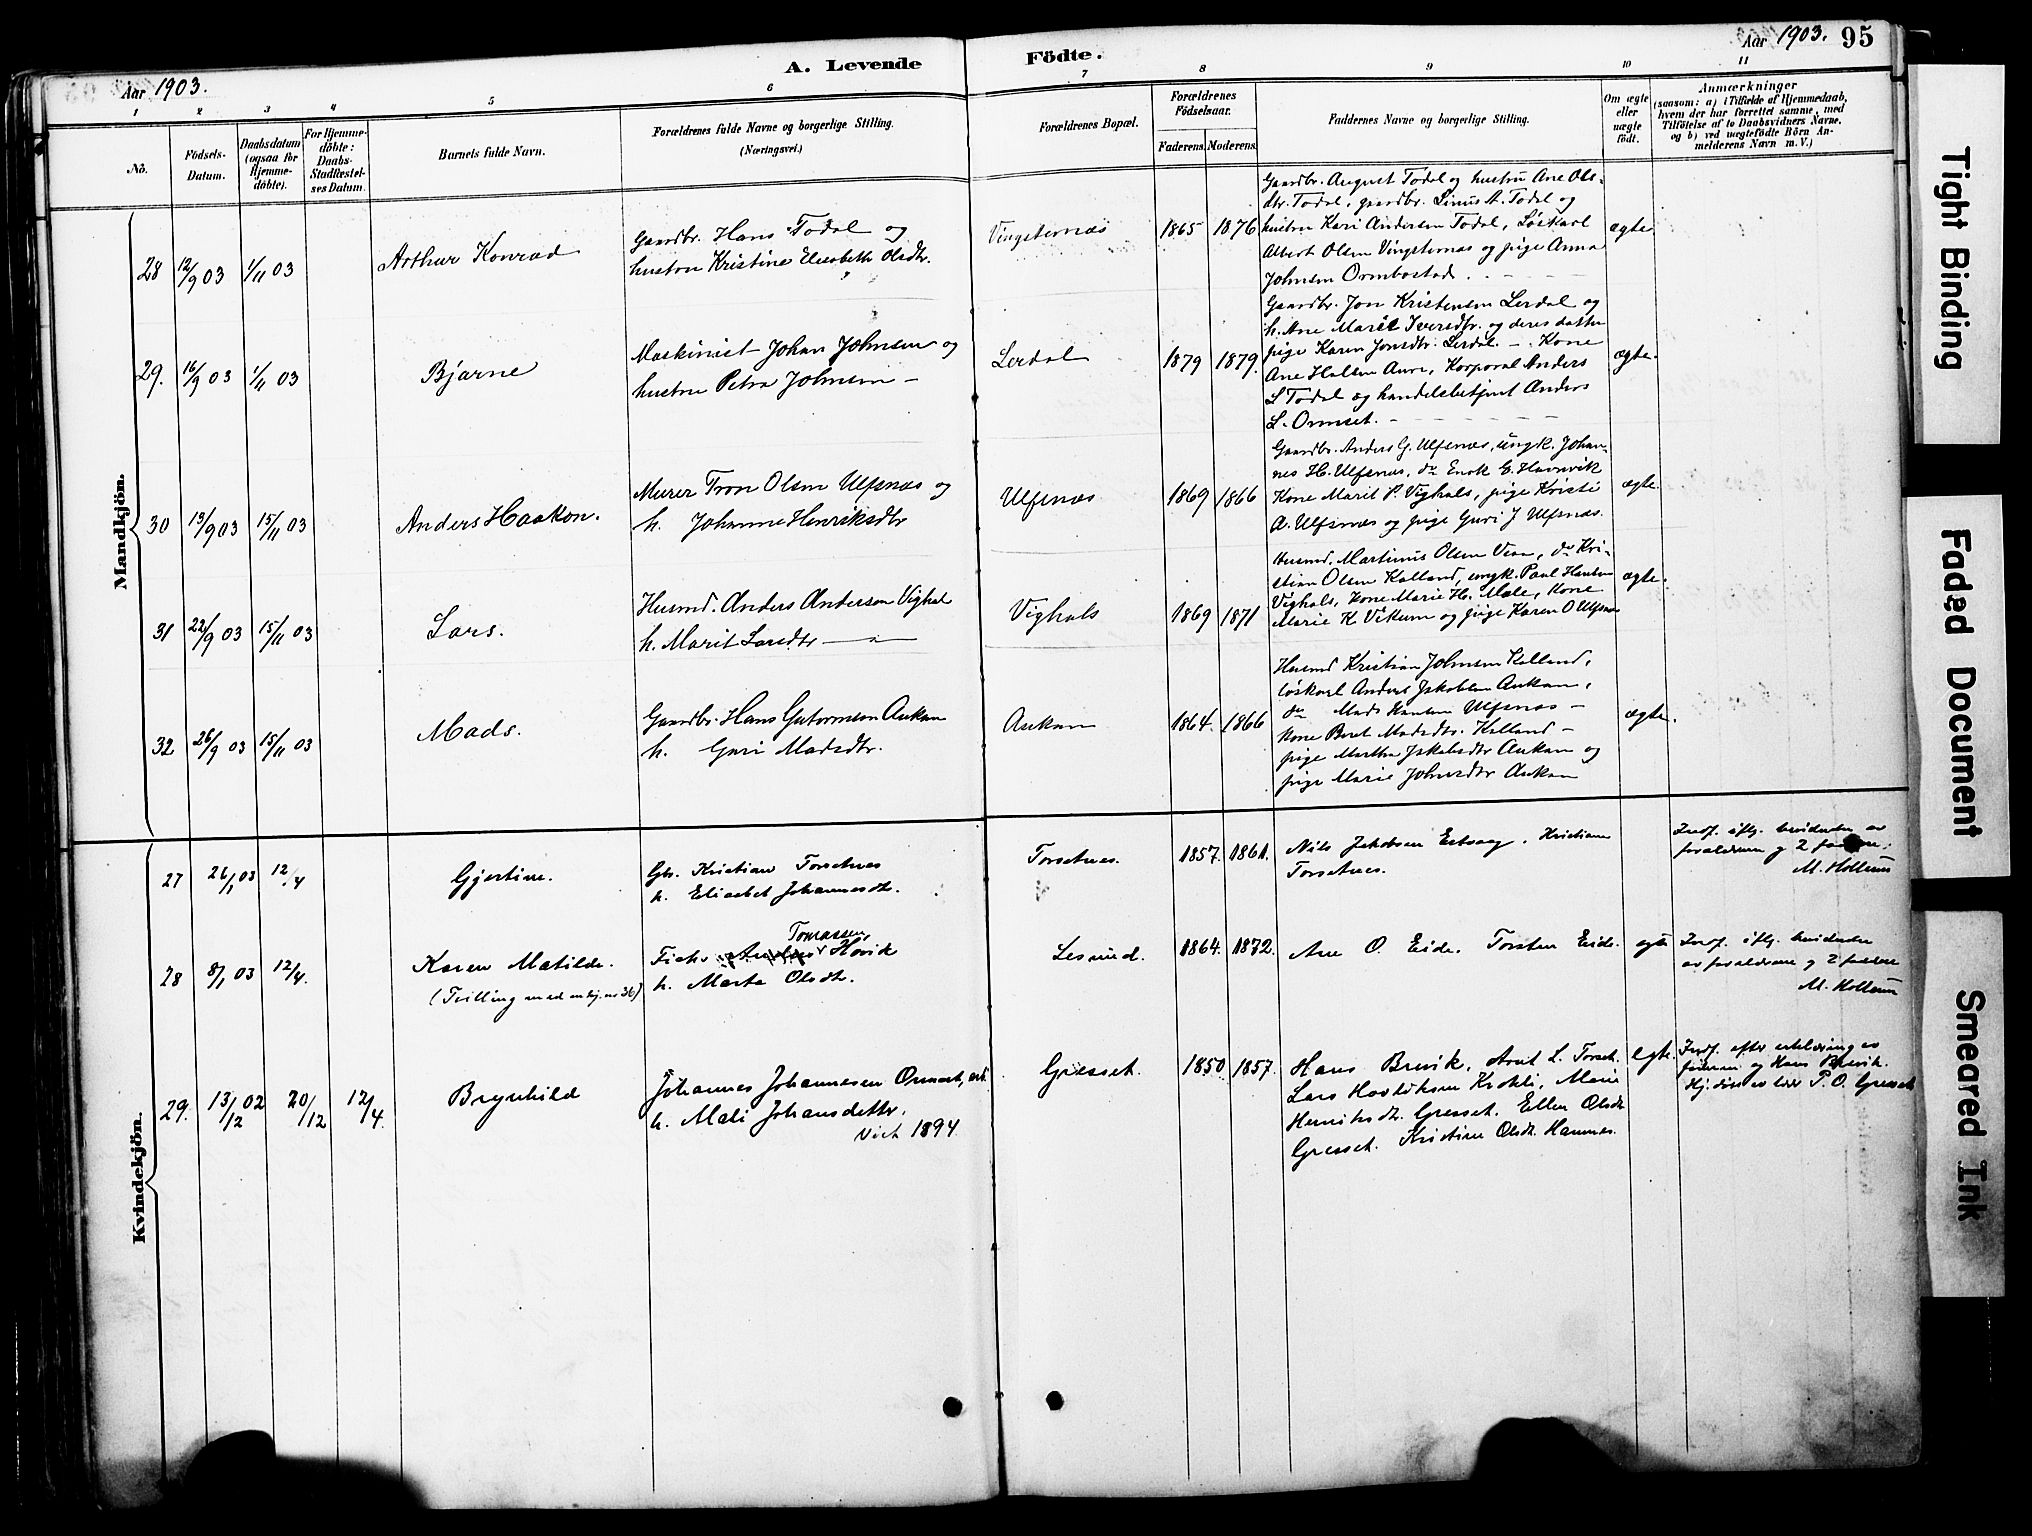 Aar 1903.
A. Levende
Födte.
Aar 1903. 95
1 2 3 4 5 6 7 8 9 10 11
No.
Födsels-
Datum.
Daabsdatum
(ogsaa for
Hjemme-
döbte).
For Hjemme-
döbte:
Daabs-
Stadfæstel-
ses Datum.
Barnets fulde Navn.
Forældrenes fulde Navne og borgerlige Stilling.
(Næringsvei.)
Forældrenes Bopæl.
Forældrenes
Födselsaar.
Faderens. Moderens.
Faddernes Navne og borgerlige Stilling.
Om ægte
eller
uægte
födt.
Anmærkninger
(saasom: a) i Tilfælde af Hjemmedaab,
hvem der har forrettet samme, med
Tilföielse af to Daabsvidners Navne,
og b) ved uægtefödte Börn An-
melderens Navn m. V.)
Mandkjön.
28 12/9 03 1/11 03
Arthur Konrad
Gaardbr. Hans Todal og
hustru Kristine Elisabeth Olsdtr.
Vingsternæs
1865 1876
Gaardbr. August Todal og hustru Ane Ols-
dtr. Todal, gaardbr. Linus A. Todal og
hustru Kari Andersen Todal, Löskarl
Albert Olsen Vingsternæs og pige Anna
Johnsen Ormbostad.
ægte
29. 16/9 03 1/11 03
Bjarne
Maskinist Johan Johnsen og
hustru Petra Johnsen –
Lerdal
1879 1879.
Gaardbr. Jon Kristensen Lerdal og
h. Ane Marit Iversdtr. og deres datter
pige Karen Jonsdtr. Lerdal. – Kone
Ane Halsen Aure, Korporal Anders
L Todal og handelsbetjent Anders
L. Ormset. –
ægte.
30 13/9 03 15/11 03
Anders Haakon.
Murer Tron Olsen Ulfsnæs og
h. Johanne Henriksdtr
Ulfsnæs
1869 1866
Gaardbr. Anders G. Ulfsnæs, ungk. Johan-
nes H. Ulfsnæs, do Enok E. Havnvik
Kone Marit P. Vighals, pige Kristi
A. Ulfsnæs og pige Guri J Ulfsnæs.
ægte.
31 22/9 03 15/11 03
Lars.
Husmd. Anders Anderson Vighals
h. Marit Larsdtr
Vighals
1869 1871
Husmd. Martinus Olsen Vean, do Kri-
stian Olsen Kalland, ungk. Paul Hansen
Vighals, Kone Marie H. Mele, Kone
Marie K. Vikum og pige Karen O Ulfsnæs
ægte.
32 26/9 03 15/11 03
Mads.
Gaardbr. Hans Guttormsen Aukan
h. Guri Madsdtr.
Aukan
1864. 1866
Husmd Kristian Johnsen Kalland,
löskarl Anders Jakobsen Aukan,
do Mads Hansen Ulfsnæs –
Kone Beret Madsdtr. Kalland –
pige Martha Jakobsdtr Aukan og
pige Marie Johnsdtr Aukan
ægte.
Kvindekjön.
27 26/1 03 12/4
Gjertine.
Gbr. Kristian Torsetnes
h. Elisabet Johannesdtr.
Torsetnes.
1857. 1861.
Nils Jakobsen . Kristian
Torsetnes.
Indf. iflg. bevidnelse av
forældrene g 2 faddere.
M. Holtum
28 8/1 03 12/4.
Karen Matilde.
(Tvilling med mkj. no 36)
Tomassen,
Fisker Anders Hövik
h. Marta Olsdtr.
Lesund.
1864. 1872.
Ane O. Eide. Torsten Eide.
egte
Indf. iflg. bevidnelse
av forældrene g 2 faddere
M. Holtum
29. 13/12 02 20/12 12/4.
Brynhild
Johannes Johannesen Ormset,
h. Mali Johansdatter.
Viet 1894
Gresset.
1850 1857.
Hans Brevik. Arnt L. Torset.
Lars Hovdiksen Krokli, Marie
Henriksdtr. Gresset. Ellen Olsdtr
Gresset. Kristine Olsdtr. Hamnes.
egte.
Indf. efter erklæring av
faderen og Hans Brevik.
Hj. döbt av lærer P. O. Gresset
Tight Binding
Faded Document
Smeared Ink